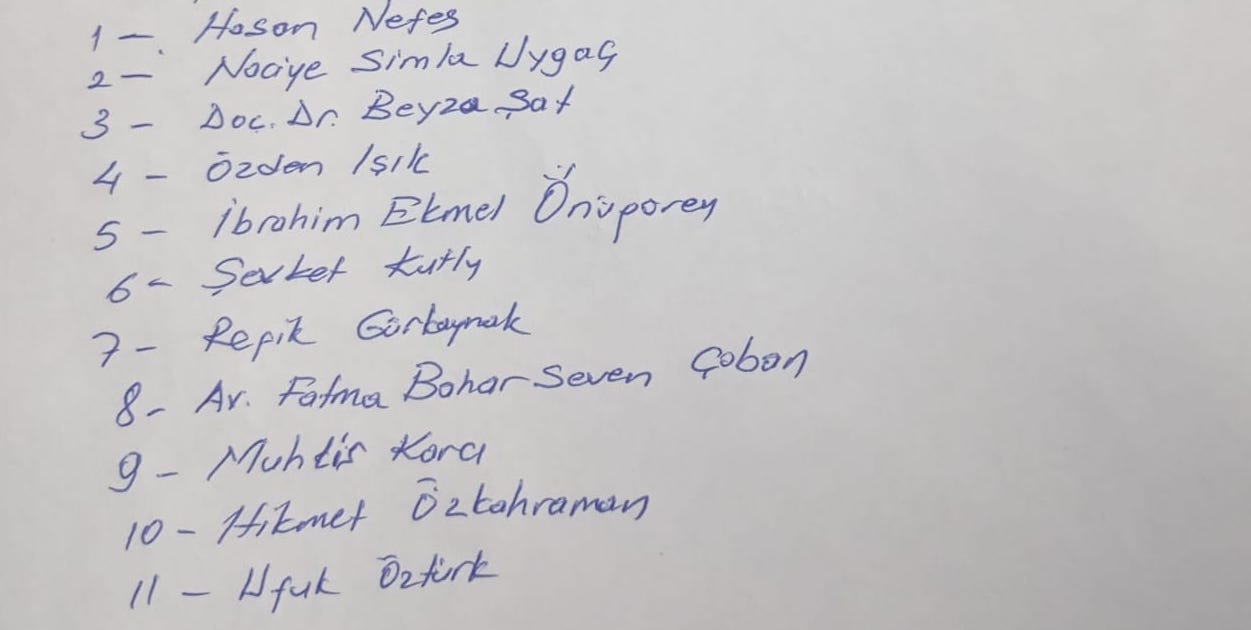 1 - Hasan Nefes
2 - Naciye Simla Uygaç
3 - Doç. Dr. Beyza Şat
4 - Özden Işık
5 - İbrahim Ekmel Önüparey
6 - Şevket Kutly
7 - Refik Gürkaynak
8 - Av. Fatma Bahar Seven Çoban
9 - Muhtir Karcı
10 - Hikmet Özkahraman
11 - Ufuk Öztürk